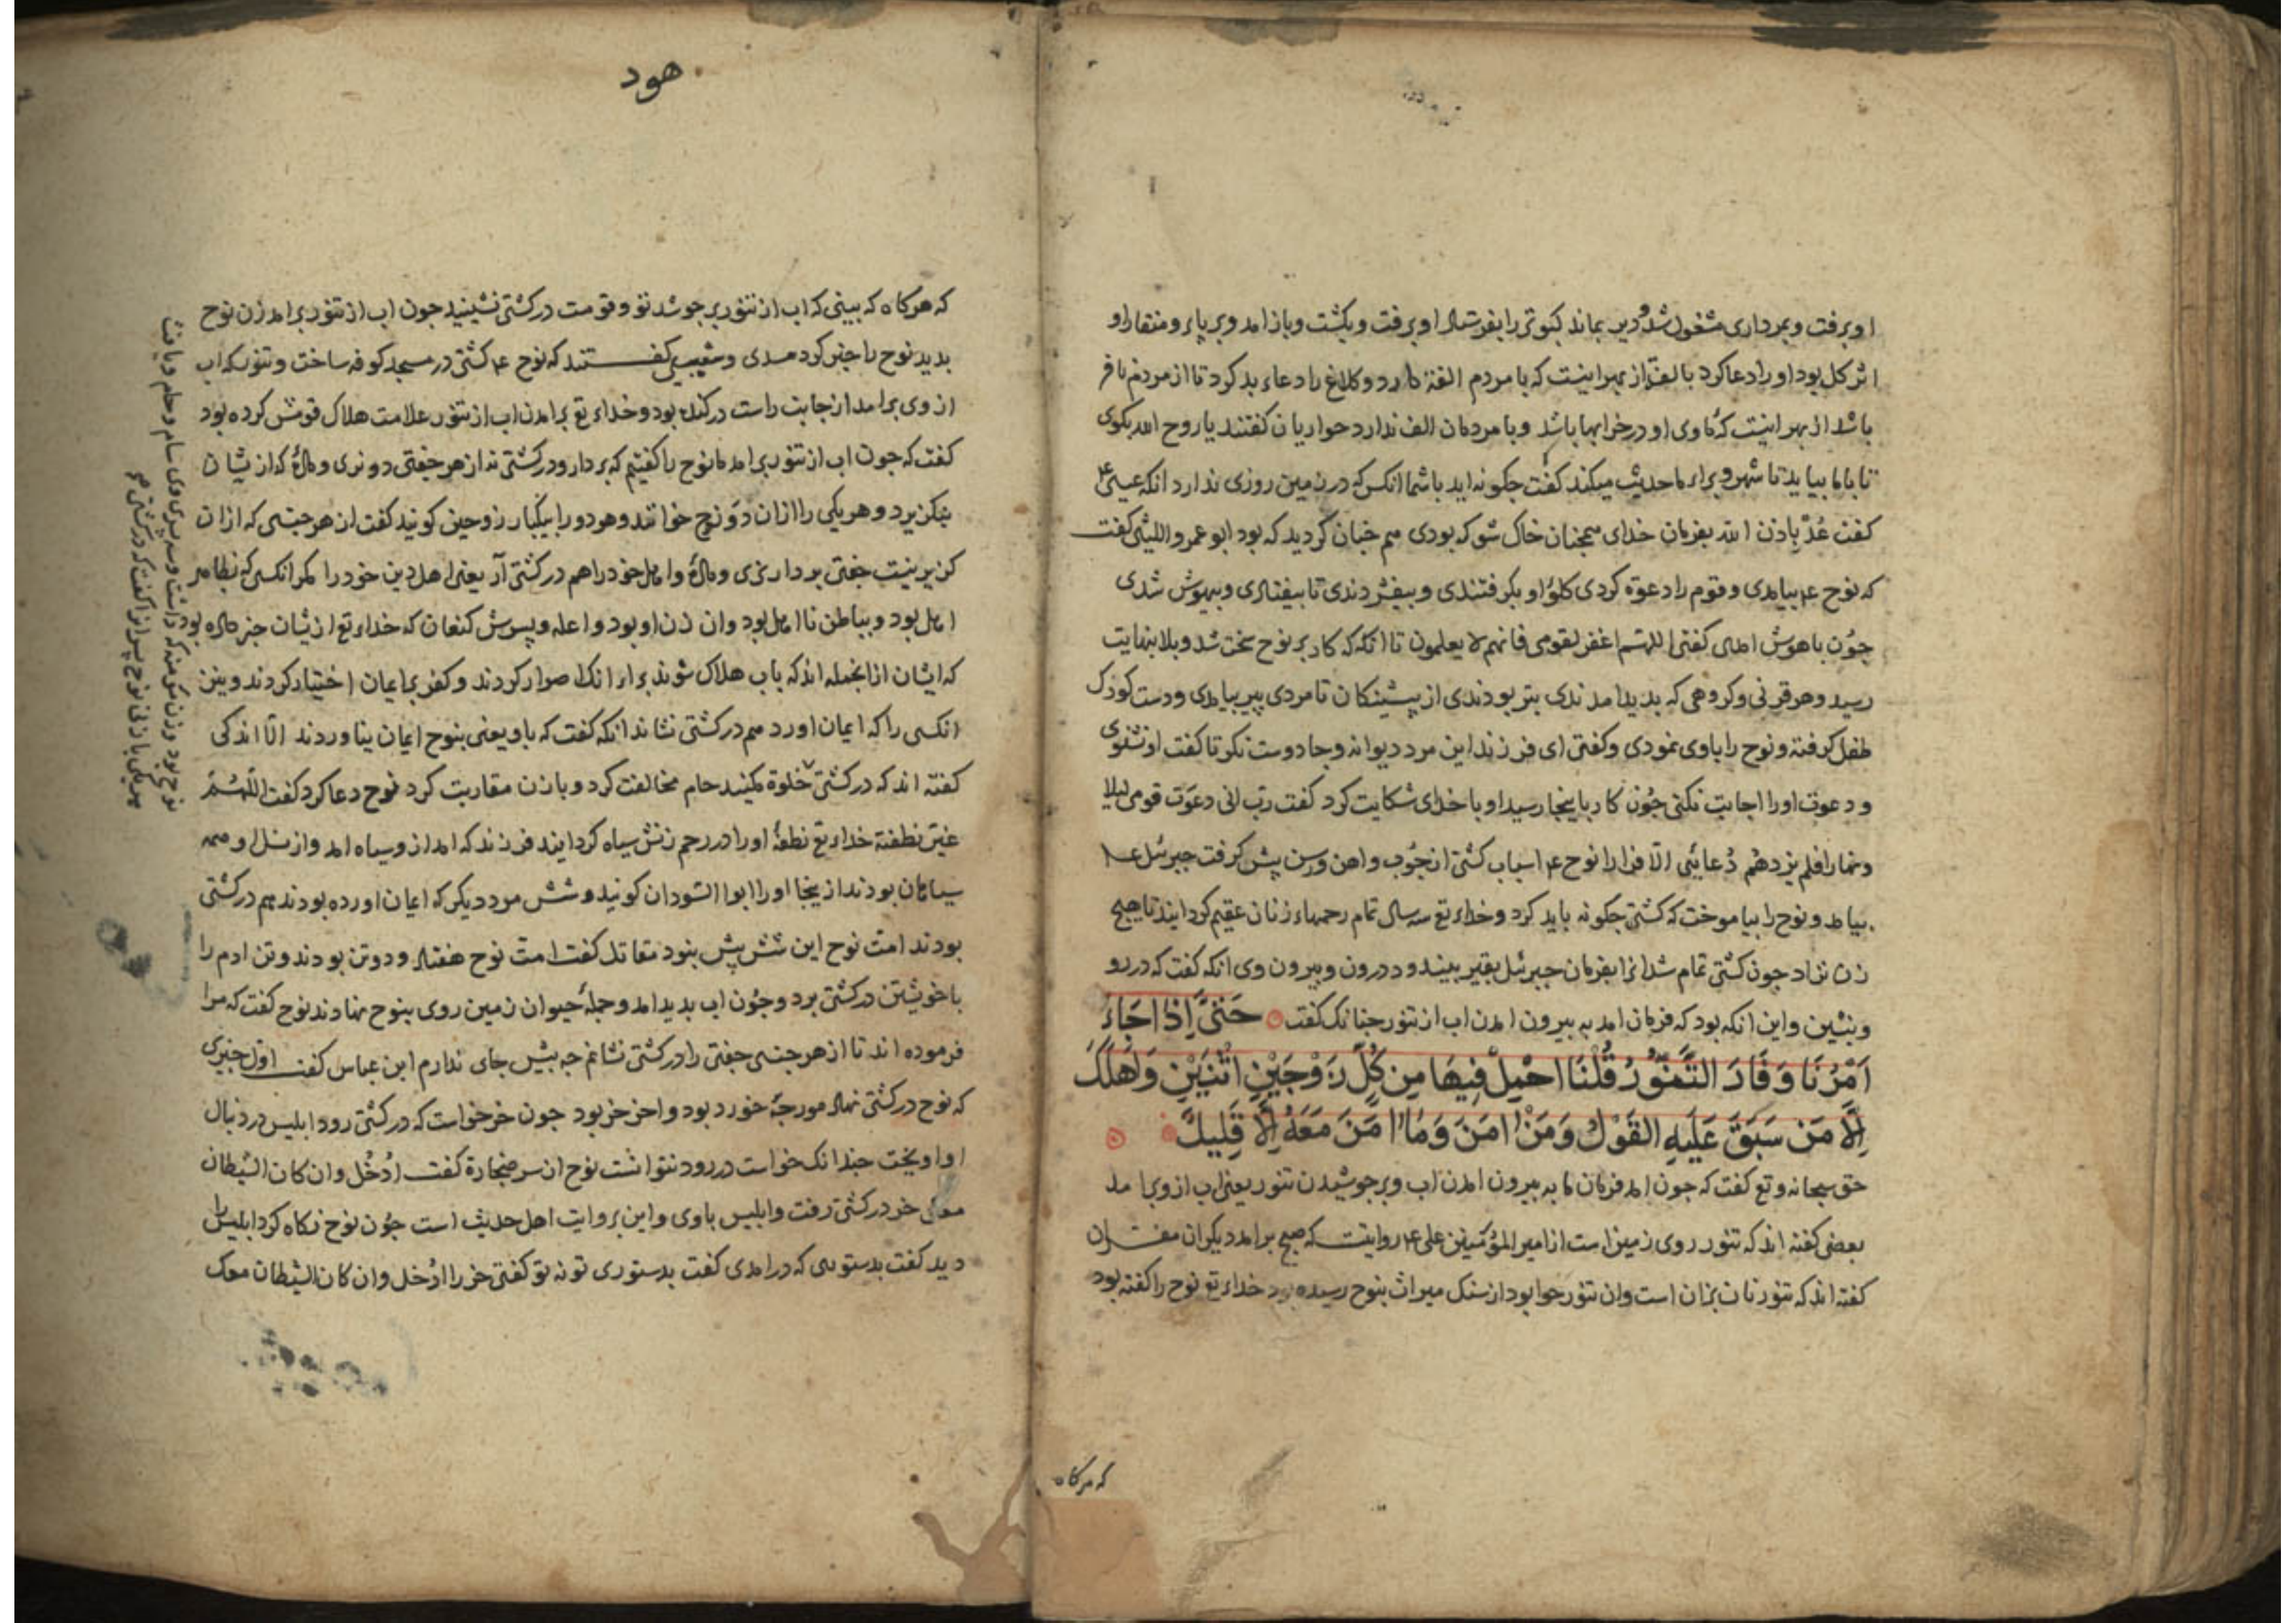 او برفت و بمرداری مشغول شد و دیر بماند کبوتر را بفرستاد او برفت و بگشت و باز امد و بر پاء و منقار او
اثر کل بود او را دعا کرد بالفت از بهر اینست که با مردم الفة دارد و کلاغ را دعاء بد کرد تا از مردم نافر
باشد از بهر اینست که ماوی او در خرابها باشد و با مردمان الف ندارد حواریان کفتند یا روح الله بکوی
تا با ما بیاید تا شهر و براء ما حدیث میکند کفت جکونه اید با شما انکس که در زمین روزی ندارد انکه عیسی ع
کفت عُدْ بِاذن الله بفرمان خدای همجنان خاک شو که بودی هم جنان کردید که بود ابو عمرو اللیثی کفت
که نوح ع بیامدی و قوم را دعوة کردی کلوُ او بکرفتندی و بیفشردندی تا بیفتادی و بیهوش شدی
جوُن باهوش امدی کفتی اللهم اغفر لقومی فانهم لا یعلمون تا انکه که کار بر نوح سخت شد و بلا بنهایت
رسید و هر قرنی و کروهی که بدید امدندی بتر بودندی از پیشینکان تا مردی پیر بیامدی و دست کودک
طفل کرفته و نوح را باوی نمودی و کفتی ای فرزند این مرد دیوانه و جادوست نکر تا کفت او نشنوی
و دعوت او را اجابت نکنی جوُن کار باینجا رسید او با خدای شکایت کرد کفت رب انی دعوت قومی لیلا
ونهارا فلم یزدهم دُعائی الّا فرارا نوح ع اسباب کشتی از جوُب و اهن و رسن پیش کرفت جبرئل ع
بیامد و نوح را بیاموخت که کشتی جکونه باید کرد و خداء تع سه سال تمام رحمهاء زنان عقیم کردانید تا هیج
زن نزاد جون کشتی تمام شد انرا بفرمان جبرئل بقیر بیندود درون و بیرون وی انکه کفت که در رو
و بنشین و این انکه بود که فرمان امد به بیرون امدن اب از تنور جنانک کفت حَتّیَٰ اِذَا جَاءَ
اَمْرُنَا وَفَارَ التَّنّوُرُ قُلْنَا احْمِلْ فِیهَا مِن کُلٍّ زَوْجَیْنِ اثْنَیْنِ وَاَهْلَکَ
اِلّا مَن سَبَقَ عَلَیهِ القَوْلُ وَمَنْ اٰمَنَ وَمَا اٰمَنَ مَعَهُ اِلّا قَلِیلٌ
حق سبحانه و تع کفت که جون امد فرمان ما به بیرون امدن اب و بر جوشیدن تنور یعنی اب از وی برامد
بعضی کفته اند که تنور روی زمین است از امیر المؤمنین علی ع روایتست که صبح برامد دیکران مفسران
کفته اند که تنور نان پزان است و ان تنور حوا بود از سنک میراث بنوح رسیده بود خداء تع نوح را کفته بود
که هرکاه
هود
که هرکاه که بینی که اب از تنور بر جوشد تو و قومت در کشتی نشینید جون اب از تنور برامد زن نوح
بدید نوح را خبر کرد سدی و شعبی کفتند که نوح ع کشتی در مسجد کوفه ساخت و تنور که اب
از وی برامد از جانب راست در کنده بود و خداء تع برامدن اب از تنور علامت هلاک قومش کرده بود
کفت که جون اب از تنور برامد ما نوح را کفتیم که بردار و در کشتی نه از هر جفتی دو نری و مادهٔ که از نیشان
نکزیرد و هر یکی را از ان دو زوج خوانند و هر دو را بیکبار زوجین کویند کفت از هر جنسی که از ان
کزیر نیست جفتی بردار نری و مادهٔ و اهل خود را هم در کشتی آر یعنی اهل دین خود را مکر انکسی که بظاهر
اهل بود و بباطن نااهل بود و ان زن او بود واعله و پسرش کنعان که خداء تع از نیشان خبر داده بود
که ایشان از انجمله اند که باب هلاک شوند براء انک اصرار کردند و کفر بر ایمان اختیار کردند و نیز
انکسی را که ایمان اورد هم در کشتی نشاند انکه کفت که باو یعنی بنوح ایمان نیاوردند الّا اندکی
کفته اند که در کشتی خلوة مکنید حام مخالفت کرد و با زن مقاربت کرد نوح دعا کرد کفت اللّهُمّ
غیّر نطفته خداء تع نطفهٔ او را در رحم زنش سیاه کردانید فرزند که امد از و سیاه امد و از نسل او همه
سیاهان بودند از ینجا او را ابوا السّودان کویند و شش مرد دیکر که ایمان اورده بودند هم در کشتی
بودند امت نوح این شش بیش نبود مقاتل کفت امت نوح هفتاد و دو تن بودند و تن ادم را
با خویشتن در کشتی برد و جوُن اب بدید امد و جملهٔ حیوان زمین روی بنوح نهادند نوح کفت که مرا
فرموده اند تا از هر جنسی جفتی را در کشتی نشانم جه بیش جای ندارم ابن عباس کفت اوّل جیزی
که نوح در کشتی نهاد مورجهٔ خورد بود و اخر خر بود جون خر خواست که در کشتی رود ابلیس در دنبال
او اویخت جندانک خواست در رود نتوانست نوح از سر ضجارة کفت ادُخُل وان کان الشیطان
معک خر در کشتی رفت و ابلیس باوی و این بروایت اهل حدیث است جوُن نوح نکاه کرد ابلیس را
دید کفت بدستوری که درامدی کفت بدستوری تو نه تو کفتی خر را ادُخل وان کان الشیطان معک
نوح بود و زن مومنه که داشت و سه پسر وی سام و حام و یافث
هر یکی با زنی نوح پسرانرا کفت که در کشتی